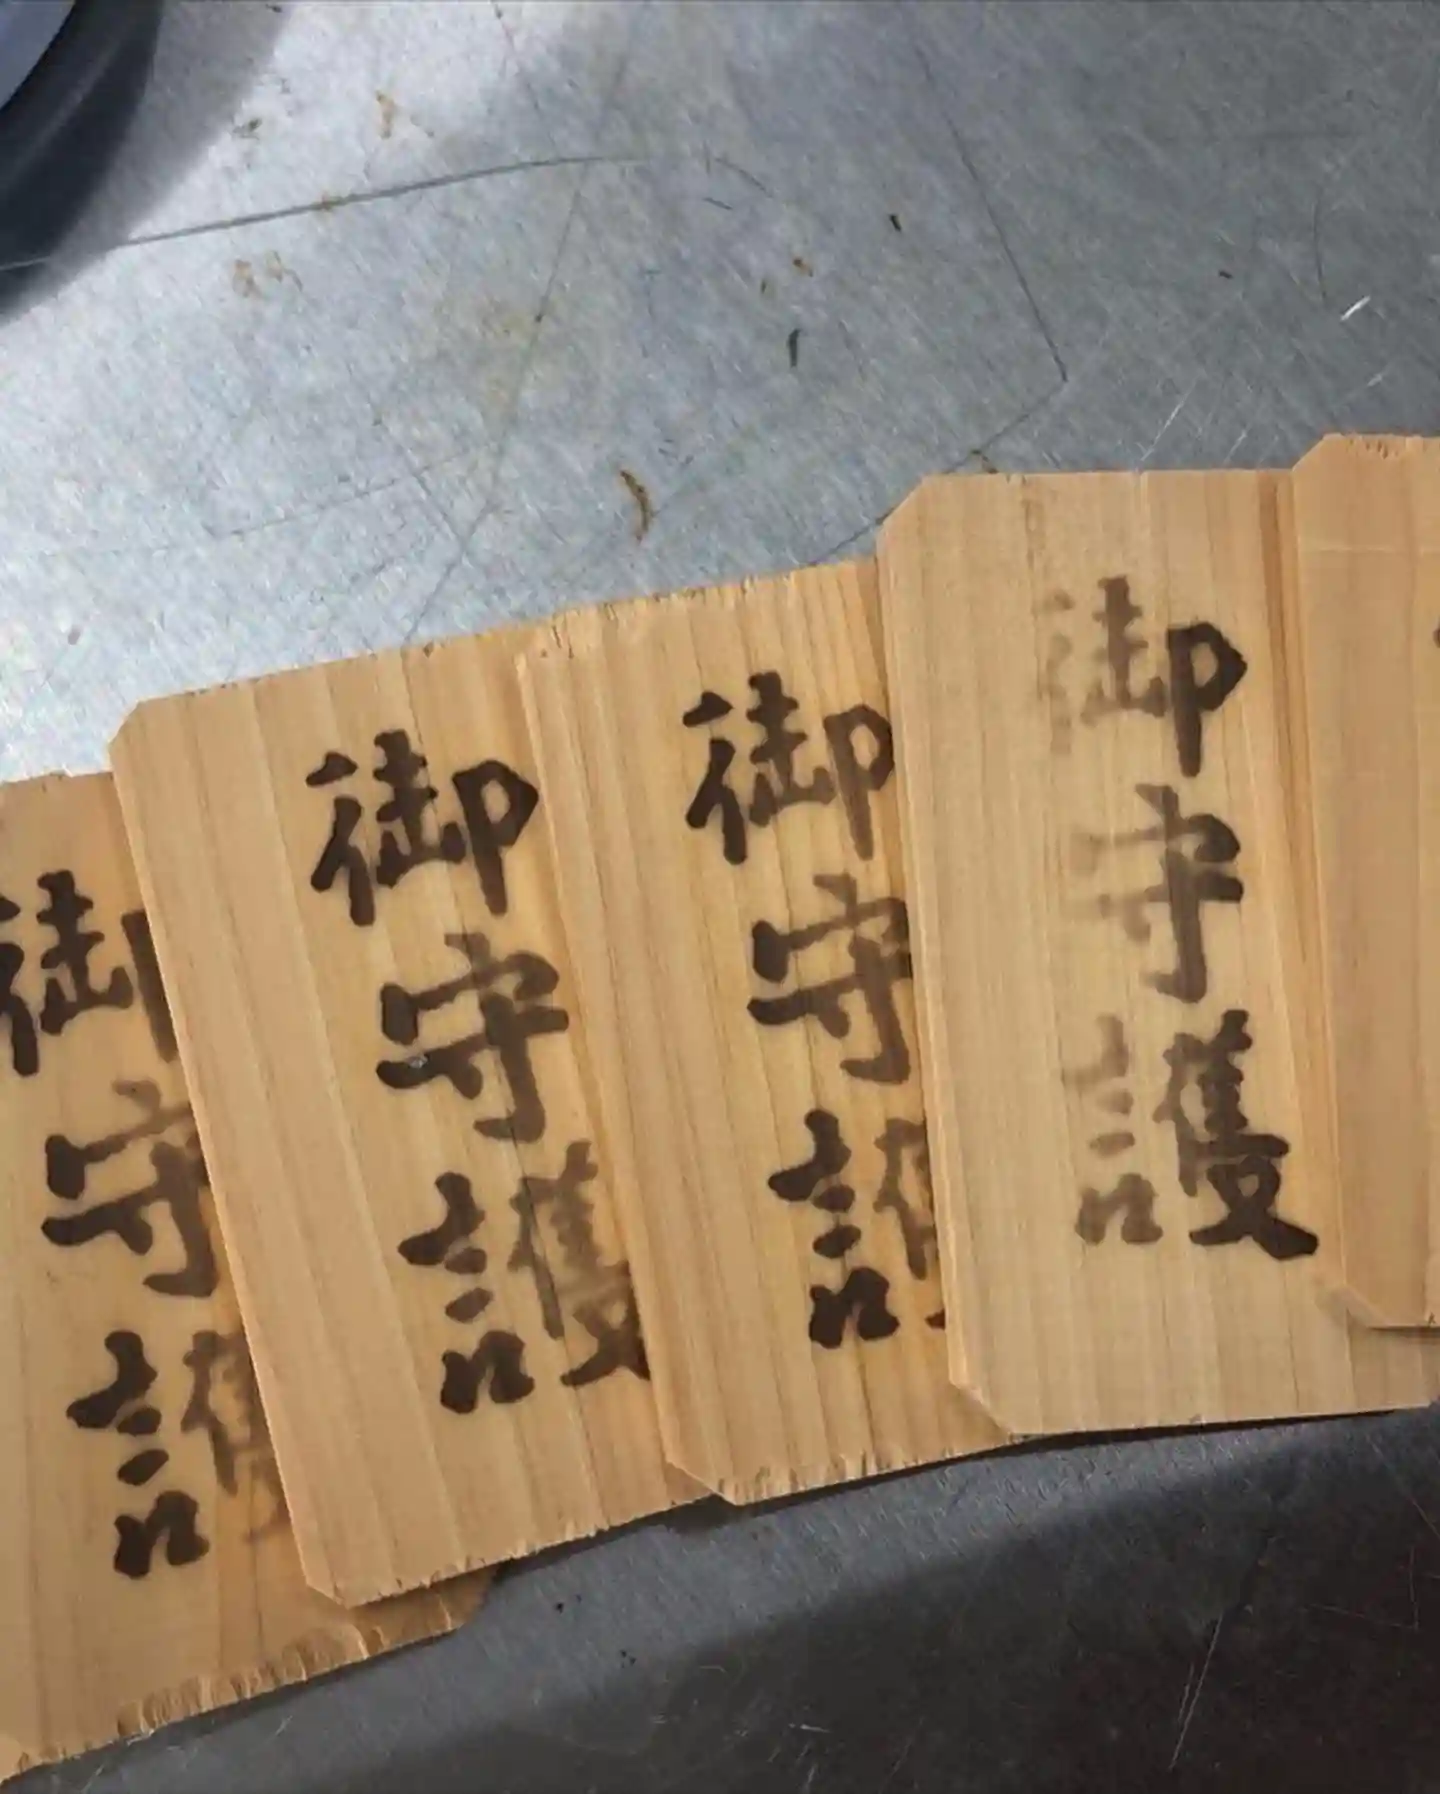 御守護
御守護
御守護
御守護